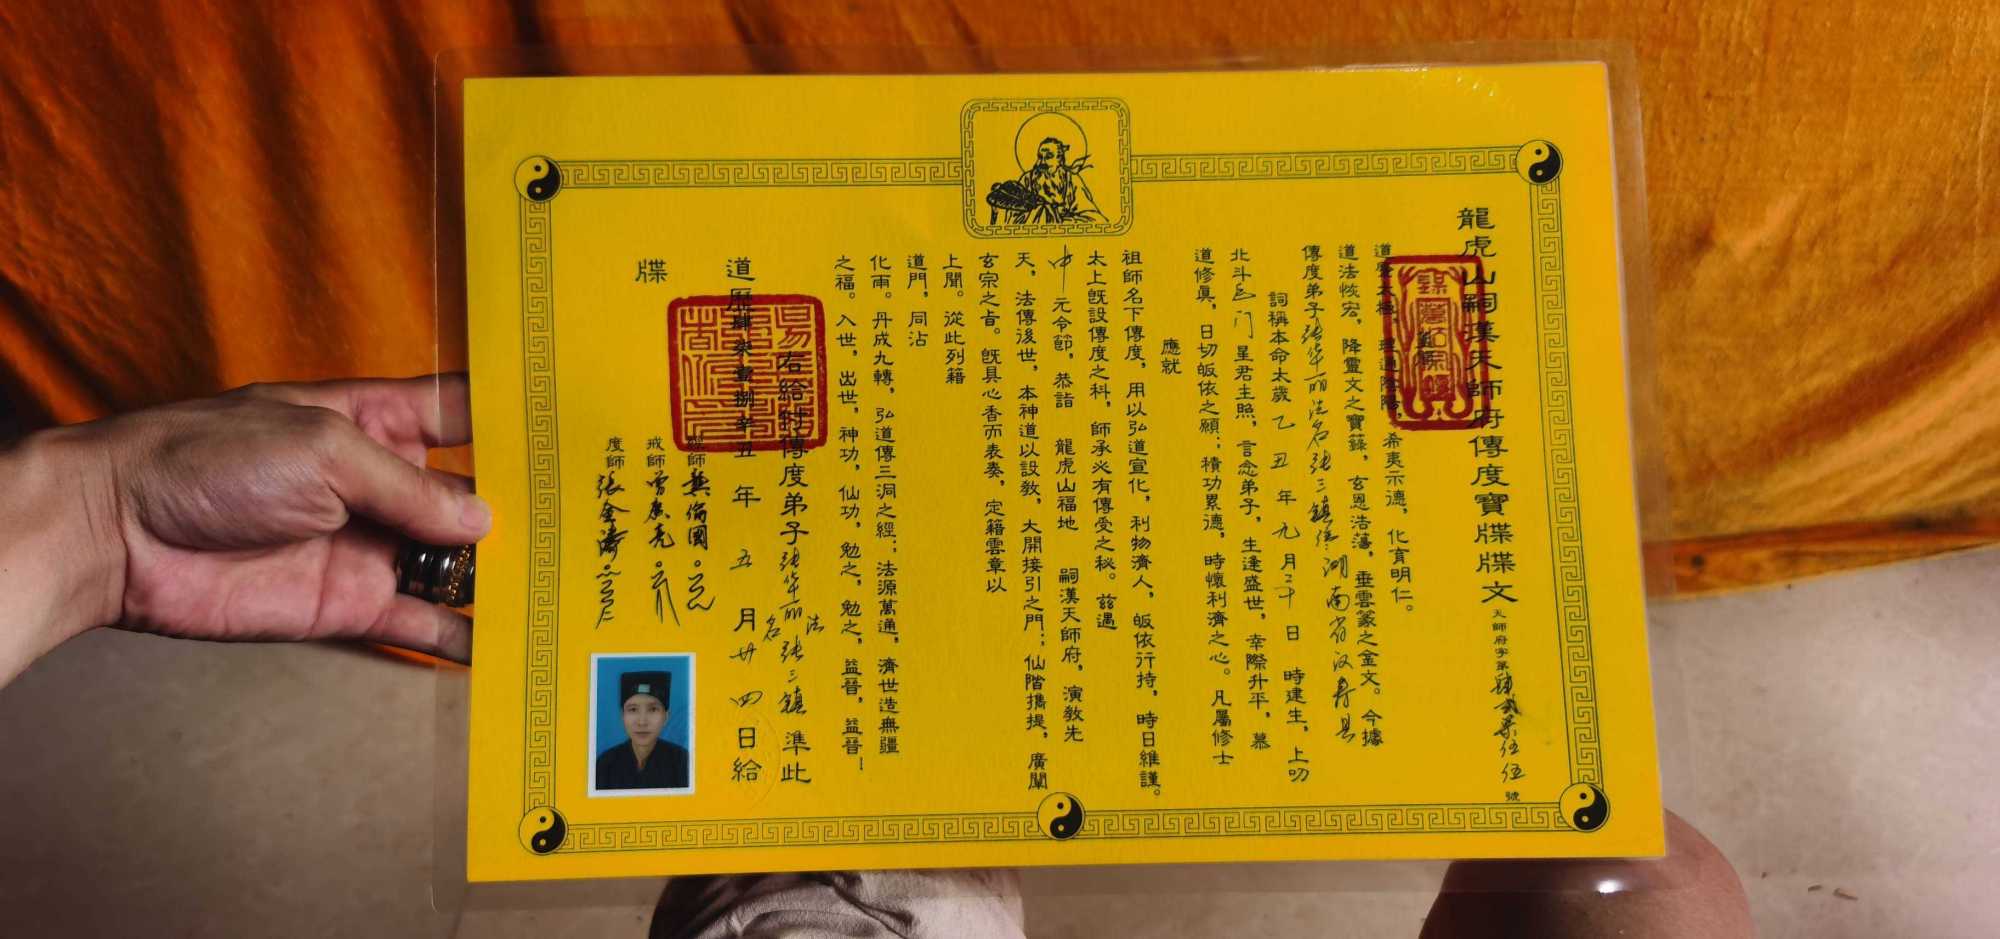 龍虎山嗣漢天師府傳度寶牒牒文 天師府字第肆貳柒伍伍號
道 希夷示德，化育明仁。
道法恢宏，降靈文之寶籙，玄恩浩蕩，垂雲篆之金文。今據
傳度弟子张华丽法名张三镇 湖南省汉寿县
詞稱本命太歲乙丑年九月三十日 時建生，上叨
北斗巨门星君主照，言念弟子，生逢盛世，幸際升平，慕
道修眞，日切皈依之願；積功累德，時懷利濟之心。凡屬修士
應就
祖師名下傳度，用以弘道宣化，利物濟人，皈依行持，時日維謹。
太上旣設傳度之科，師承必有傳受之秘。兹遇
中元令節，恭詣 龍虎山福地 嗣漢天師府，演教先
天，法傳後世，本神道以設教，大開接引之門；仙階携提，廣闡
玄宗之旨。旣具心香而表奏，定籍雲章以
上聞。從此列籍
道門，同沾
化雨。丹成九轉，弘道傳三洞之經；法源萬通，濟世造無疆
之福。入世，出世，神功，仙功，勉之，勉之，益晉，益晉！
右給付傳度弟子张华丽法名张三镇準此
道歷肆柒壹捌辛丑年五月廿四日給
牒
師龔倫國
戒師曾廣亮
度師張金濤